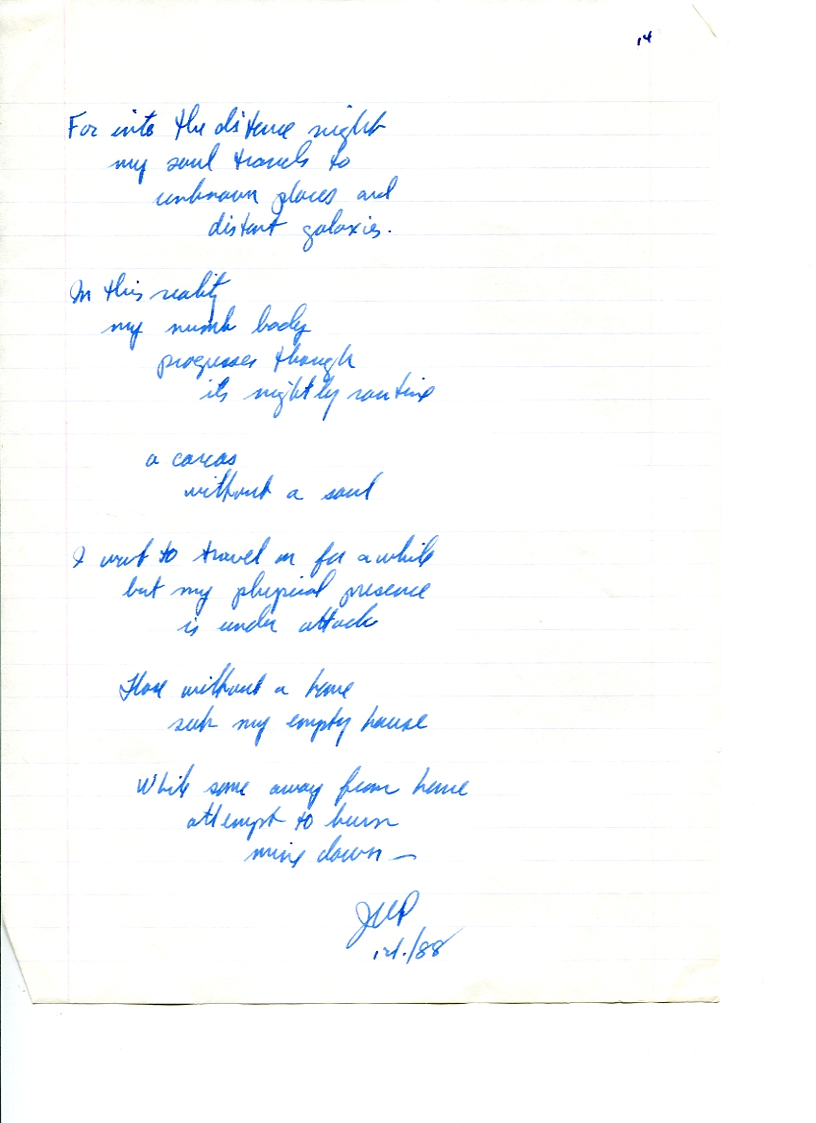 14
For into the distence night
my soul travels to
unknown places and
distent galaxies.
In this reality
my numb body
progresses though
its nightly routine
a carcas
without a soul
I want to travel on for a while
but my physical presence
is under attack
Those without a home
seek my empty house
While some away from home
attempt to burn
mine down —